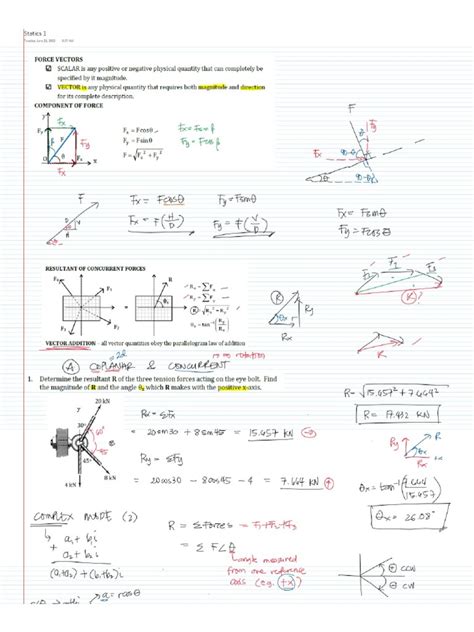 Statics 1
FORCE VECTORS
☑ SCALAR is any positive or negative physical quantity that can completely be
specified by it magnitude.
☑ VECTOR is any physical quantity that requires both magnitude and direction
for its complete description.
COMPONENT OF FORCE
Fx = Fcosθ
Fy = Fsinθ
F = √Fx² + Fy²
Fx = Fcosθ
Fy = Fsinθ
Fx = F(H/D)
Fy = F(V/D)
Fx = Fsinθ
Fy = Fcosθ
RESULTANT OF CONCURRENT FORCES
VECTOR ADDITION - all vector quantities obey the parallelogram law of addition
no rotation
A COPLANAR & CONCURRENT
1. Determine the resultant R of the three tension forces acting on the eye bolt. Find
the magnitude of R and the angle θx which R makes with the positive x-axis.
20 kN
30°
60°
45°
4 kN
8 kN
Rx = ΣFx
= 20sin30 + 8sin45 = 15.657 kN
Ry = ΣFy
= 20cos30 - 8cos45 - 4 = 7.664 kN
R = √15.657² + 7.664²
R = 17.432 kN
θx = 26.08°
COMPLEX MODE (2)
a₁ + b₁i
a₂ + b₂i
(a₁+a₂) + (b₁+b₂)i
a = rcosθ
R = Σforces = F₁+F₂+F₃
= Σ F∠θ
angle measured
from one reference
axis (eg. +x)
⊕ CCW
⊖ CW